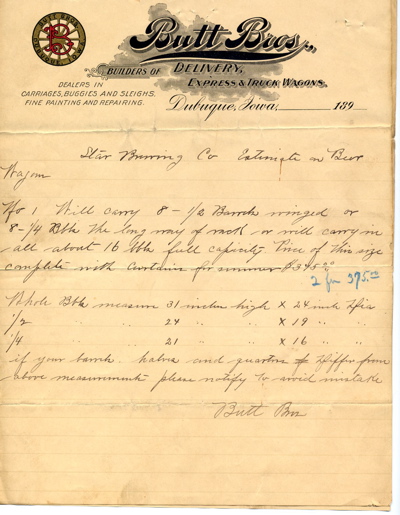 BUTT BROS
DUBUQUE, IOWA
Butt Bros.,
BUILDERS OF DELIVERY,
EXPRESS & TRUCK WAGONS.
DEALERS IN
CARRIAGES, BUGGIES AND SLEIGHS.
FINE PAINTING AND REPAIRING.
Dubuque, Iowa, 189
Star Brewing Co Estimate on Beer
Wagon
No 1 Will carry 8 - 1/2 Barrels winged or
8 - 1/4 Bbls the long way of rack or will carry in
all about 16 bbls full capacity Price of this size
complete with Curtains for summer $345.00
2 for 375.00
Whole Bbls measure 31 inches high X 24 inch Dia
1/2 " " 24 " X 19 " "
1/4 " " 21 " X 16 " "
if your barrels. halves and quarters Differ from
above measurements please notify to avoid mistake
Butt Bros